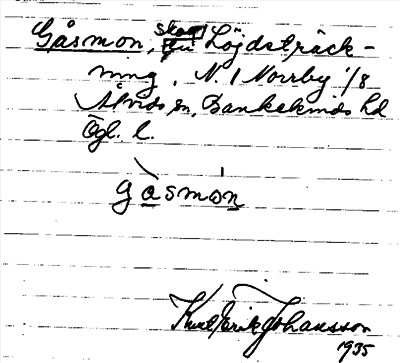 Gåsmon, skog Löjdsträck-
ning, N. I Norrby 1/8
Åtvids sn, Bankekinds hd
Ögl. l.
gåsmon
Kurt Erik Johansson
1935